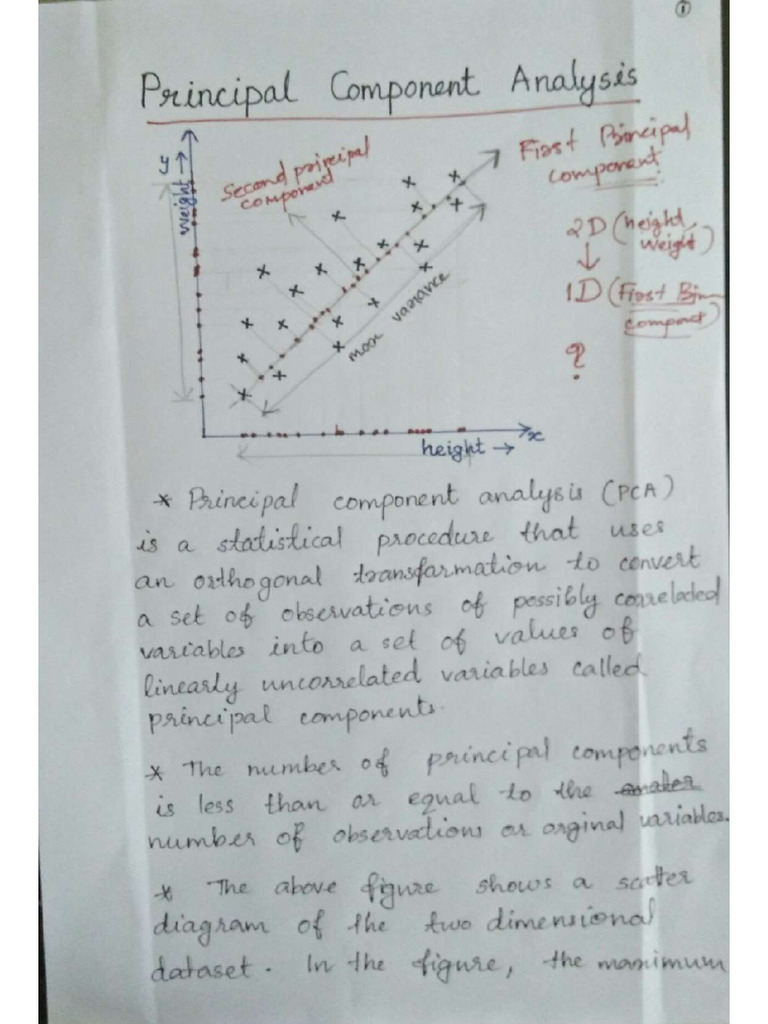 1
Principal Component Analysis
y →
weight
Second principal
component
First Principal
component
2D (height,
weight)
↓
1D (First
?
max variance
height → x
* Principal component analysis (PCA)
is a statistical procedure that uses
an orthogonal transformation to convert
a set of observations of possibly correlated
variables into a set of values of
linearly uncorrelated variables called
principal components.
* The number of principal components
is less than or equal to the smaller
number of observations or orginal variables.
* The above figure shows a scatter
diagram of the two dimensional
dataset. In the figure, the maximum